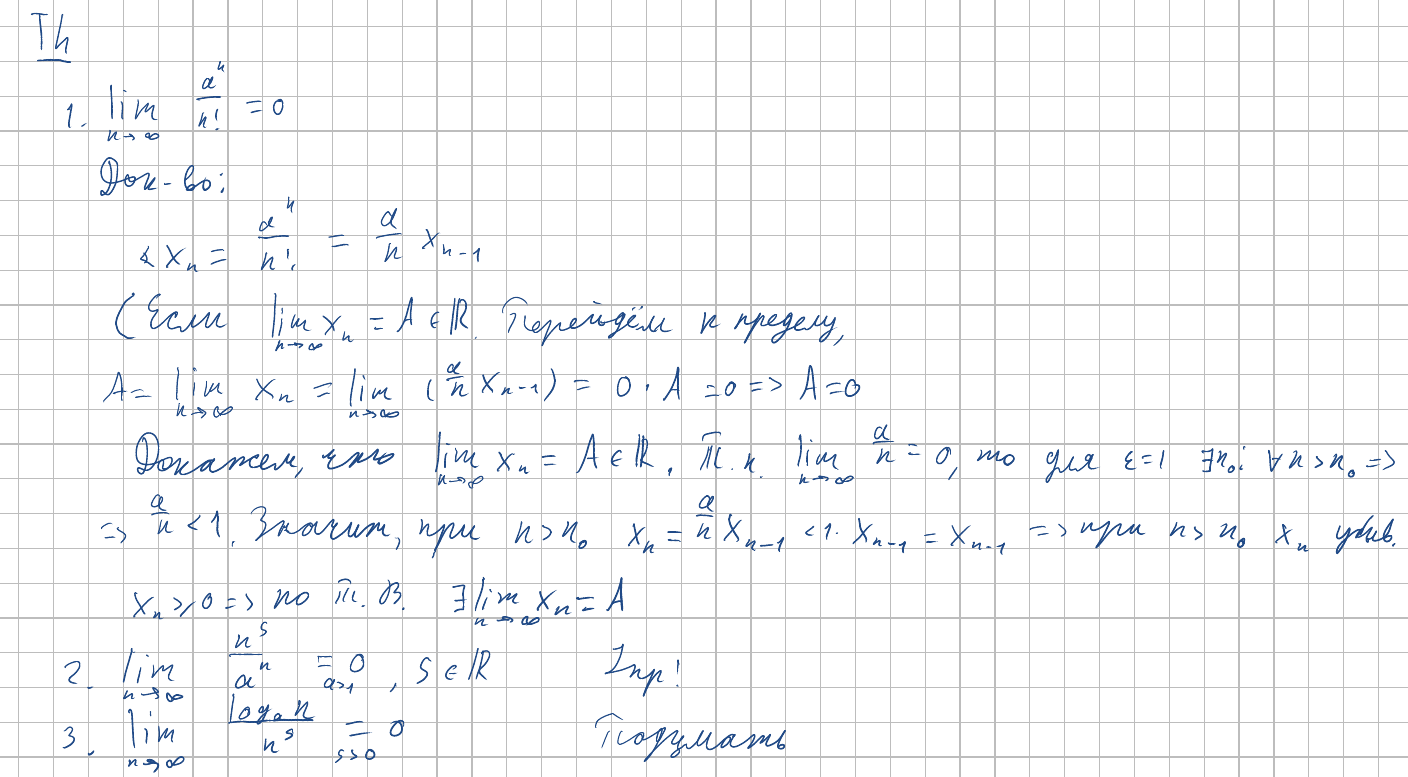 Th
1. lim_{n→∞} a^n/n! = 0
Док-во:
∢ x_n = a^n/n! = a/n x_{n-1}
(Если lim_{n→∞} x_n = A ∈ ℝ. Перейдём к пределу,
A = lim_{n→∞} x_n = lim_{n→∞} (a/n x_{n-1}) = 0 · A = 0 => A = 0
Докажем, что lim_{n→∞} x_n = A ∈ ℝ. Т.к. lim_{n→∞} a/n = 0, то для ε=1 ∃n_0: ∀n > n_0 =>
=> a/n < 1. Значит, при n > n_0 x_n = a/n x_{n-1} < 1 · x_{n-1} = x_{n-1} => при n > n_0 x_n убыв.
x_n ⩾ 0 => по т. В. ∃ lim_{n→∞} x_n = A
2. lim_{n→∞} n^s/a^n =_{a>1} 0, s ∈ ℝ Упр!
3. lim_{n→∞} log_a n/n^s =_{s>0} 0 Подумать